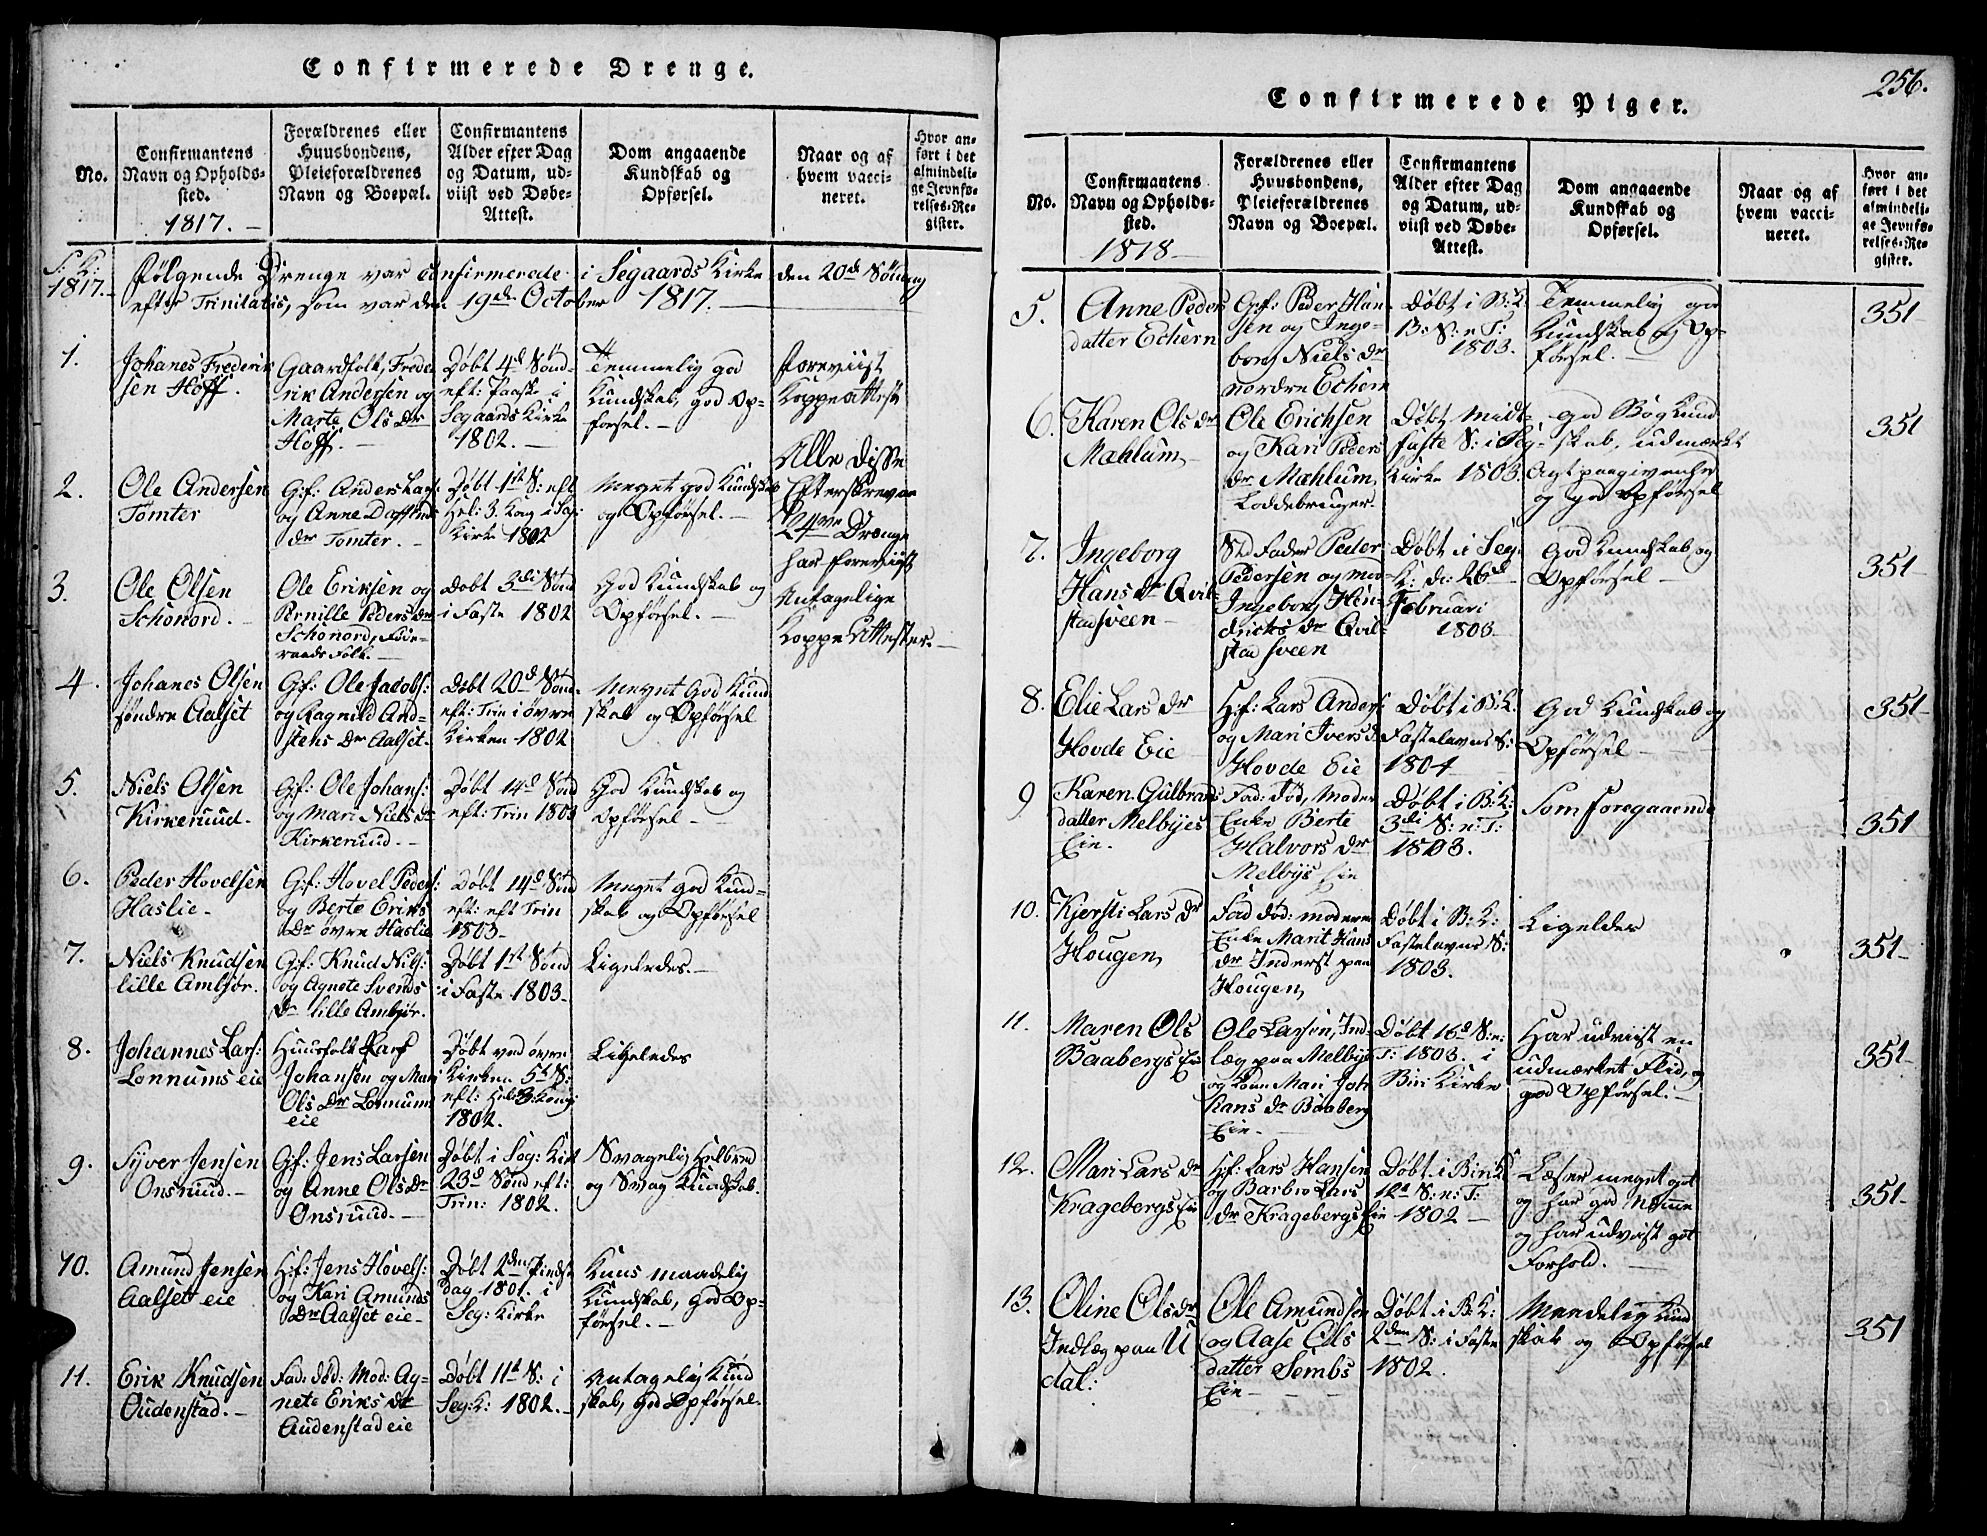 Confirmerede Drenge.
No.
Confirmantens
Navn og Opholds-
sted.
1817. -
Forældrenes eller
Huusbondens,
Pleieforældrenes
Navn og Boepæl.
Confirmantens
Alder efter Dag
og Datum, ud-
viist ved Døbe-
Attest.
Dom angaaende
Kundskab og
Opførsel.
Naar og af
hvem vacci-
neret.
Hvor an-
ført i det
almindeli-
ge Jevnfø-
relses-Re-
gister.
S: K:
1817.
Følgende Drenge var confirmerede i Segaards Kirke den 20de Sönd
efter Trinitatis, som var den 19de October 1817.
1.
Johanes Frederik
sen Hoff.
Gaardfolk, Frede
rik Andersen og
Marte Ols Dr
Hoff.
Døbt 4de Sönd-
eft: Paaske i
Segaards Kirke
1802.
Temmelig god
Kundskab, god Op-
førsel.
foreviist
Koppe Attest
2.
Ole Andersen
Tomter
Gf: Anders Lars:
og Anne
Dr Tomter.
Døbt 1ste S: eft
Hel: 3. Kong i Seg:
Kirke 1802
Meget god Kundskab
og Opførsel.
Alle disse
Efterskrevne
Drenge
har foreviist
Antagelige
Koppe Attester.
3.
Ole Olsen
Schonord.
Ole Eriksen og
Pernille Peders Dr
Schonord, Føde-
raads Folk.
Døbt 3di Sönd
i Faste 1802
God Kundskab og
Opførsel.
4.
Johanes Olsen
søndre Aalset
Gf: Ole Jacobs:
og Ragnild And-
stens Dr Aalset.
Døbt 20de Sönd.
eft: Trin i øvre
Kirken 1802
Meget God Kund
skab og Opførsel
5.
Niels Olsen
Kirkeruud.
Gf: Ole Johans:
og Mari Niels Dr
Kirkeruud.
Døbt 14de Sönd
eft: Trin 1803
God Kundskab og
Opførsel.
6.
Peder Hovelsen
Haslie.
Gf: Hovel Peders:
og Berte Eriks
Dr øvre Haslie
Døbt 14de Sönd
eft: eft Trin
1803.
Meget god Kund-
skab og Opførsel
7.
Niels Knudsen
lille Ambjør.
Gf: Knud Nils:
og Agnete Svends
Dr lille Ambjør.
Døbt 1ste Sönd
i Faste 1803.
Ligeledes.
8.
Johannes Lars:
Lonnums eie
Huusfolk Lars
Johansen og Mari
Ols Dr Lonnums
eie
Døbt ved øvre
Kirken 5te S:
eft: Hel: 3 Kong:
1802.
Ligeledes
9.
Syver Jensen
Onsruud.
Gf: Jens Larsen
og Anne Ols Dr
Onsruud.
Døbt i Seg: Kirk
23de Sønd eft:
Trin: 1802.
Svagelig Helbred
og Svag Kundskab.
10.
Amund Jensen
Aalset eie
Hf: Jens Hovels:
og Kari Amunds
Dr Aalset eie
Døbt 2den Pindse
dag 1801. i
Seg: Kirke
Kuns maadelig
Kundskab, god Op-
førsel.
11.
Erik Knudsen
Oudenstad.
Fad: død: Mod: Ag-
nete Eriks Dr
Audenstad eie
Døbt 11te S: i
Seg: K: 1802.
Antagelig Kund
skab, god Opførsel.
256.
Confirmerede Piger.
No.
Confirmantens
Navn og Opholds-
sted.
1818
Forældrenes eller
Huusbondens,
Pleieforældrenes
Navn og Boepæl.
Confirmantens
Alder efter Dag
og Datum, ud-
viist ved Døbe-
Attest.
Dom angaaende
Kundskab og
Opførsel.
Naar og af
hvem vacci-
neret.
Hvor an-
ført i det
almindeli-
ge Jevnfø-
relses-Re-
gister.
5.
Anne Peders
datter Echern
Gf: Peder Han
sen og Inge-
borg Niels Dr
nordre Echern
Døbt i B: K:
13: S: e: T:
1803.
Temmelig god
Kundskab og Op-
førsel.
351
6.
Karen Ols Dr
Mæhlum
Ole Erichsen
og Kari Peders
Dr Mæhlum
Loddebruger.
Døbt Midt-
faste S: i Seg-
Kirke 1803.
god Bog Kund
skab, udmærket
Agtpaagivenhed
og god Opførsel
351
7.
Ingeborg
Hans Dr Qvil-
stadsveen
Fader Peder
Pedersen og Mod
Ingeborg Hen-
dricks Dr Qvil-
stad sveen
Døbt i Seg.
K: d: 26d
Februari
1803
God Kundskab og
Opførsel
351
8.
Elie Lars Dr
Hovde Eie
Hf: Lars Anders:
og Mari Ivers D.
Hovde Eie
Døbt i B: K.
Fastelavns S:
1804
God Kundskab og
Opførsel
351
9
Karen Gulbrands
datter Melbyes
Eie.
Fad: død, Moder
Enke Berte
Halvors Dr
Melbys Eie
Døbt i B: K:
3di S: e: T:
1803.
Som foregaaende
351
10.
Kjersti Lars Dr
Hougen
Fad død: moderen
Enke Marit Hans
Dr Inderst paa
Hougen
Døbt i B: K:
Fastelavns S:
1803.
Ligeledes
351
11.
Maren Ols
Baabergs Eie
Ole Larsen, Ind-
læg paa Melbye
og Kone Mari Joh
hans Dr Baaberg
Eie
Døbt 16d S: e:
T: 1803. i
Biri Kirke
Har udviist en
udmærket Flid, og
god Opførsel.
351
12.
Mari Lars Dr
Kragebergs Eie
Hf: Lars Hansen
og Barbro Lars
Dr Kragebergs Eie
Døbt i Biri K
12d S: e: T:
1802
Læser meget got
og har god Nemme
og har udvist got
Forhold.
351
13.
Oline Ols Dr
Indlæg paa U
dal:
Ole Amundsen
og Aase Ols
datter Sembs
Eie
Døbt i B: K:
2den S: i Faste
1802.
Maadelig Kund
skab og Opførsel
351